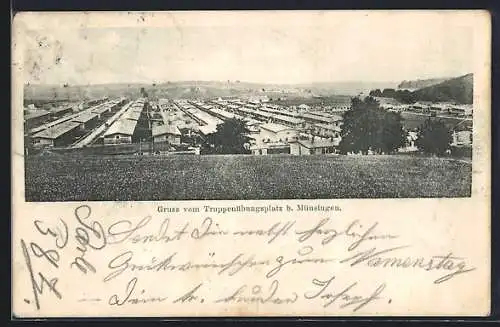 Gruss vom Truppenübungsplatz b. Münsingen.
Sendet Dir nebst herzlichen
Glückwünschen zum Namenstag
Dein tr. Bruder Josef.